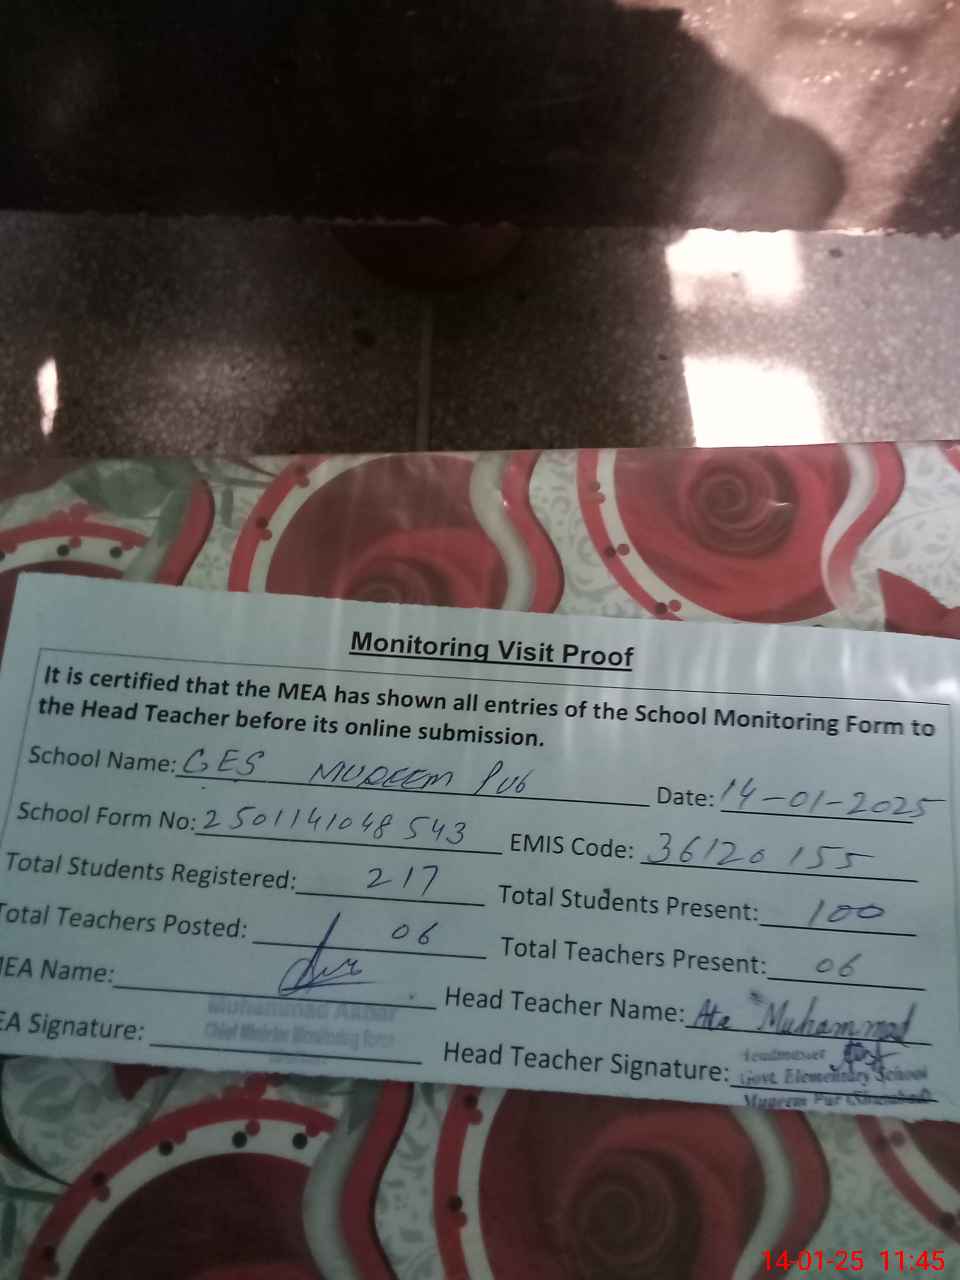 Monitoring Visit Proof
It is certified that the MEA has shown all entries of the School Monitoring Form to
the Head Teacher before its online submission.
School Name: GES MUREEM PUR Date: 14-01-2025
School Form No: 2501141048543 EMIS Code: 36120155
Total Students Registered: 217 Total Students Present: 100
Total Teachers Posted: 06 Total Teachers Present: 06
MEA Name: Head Teacher Name: Ata Muhammad
Muhammad Akbar
Chief Minister Monitoring Force
EA Signature: Head Teacher Signature:
Headmaster
Govt. Elementary School
Mureem Pur
14-01-25 11:45